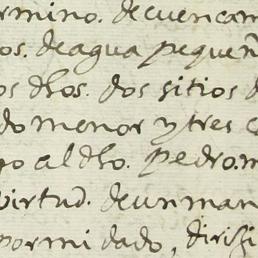 rmino. de cuencam
os. de agua pequeñ
os dhos. dos sitios d
do menor y tres c
go al dho. pedro. m
virtud. de un man
por mi dado, dirixi